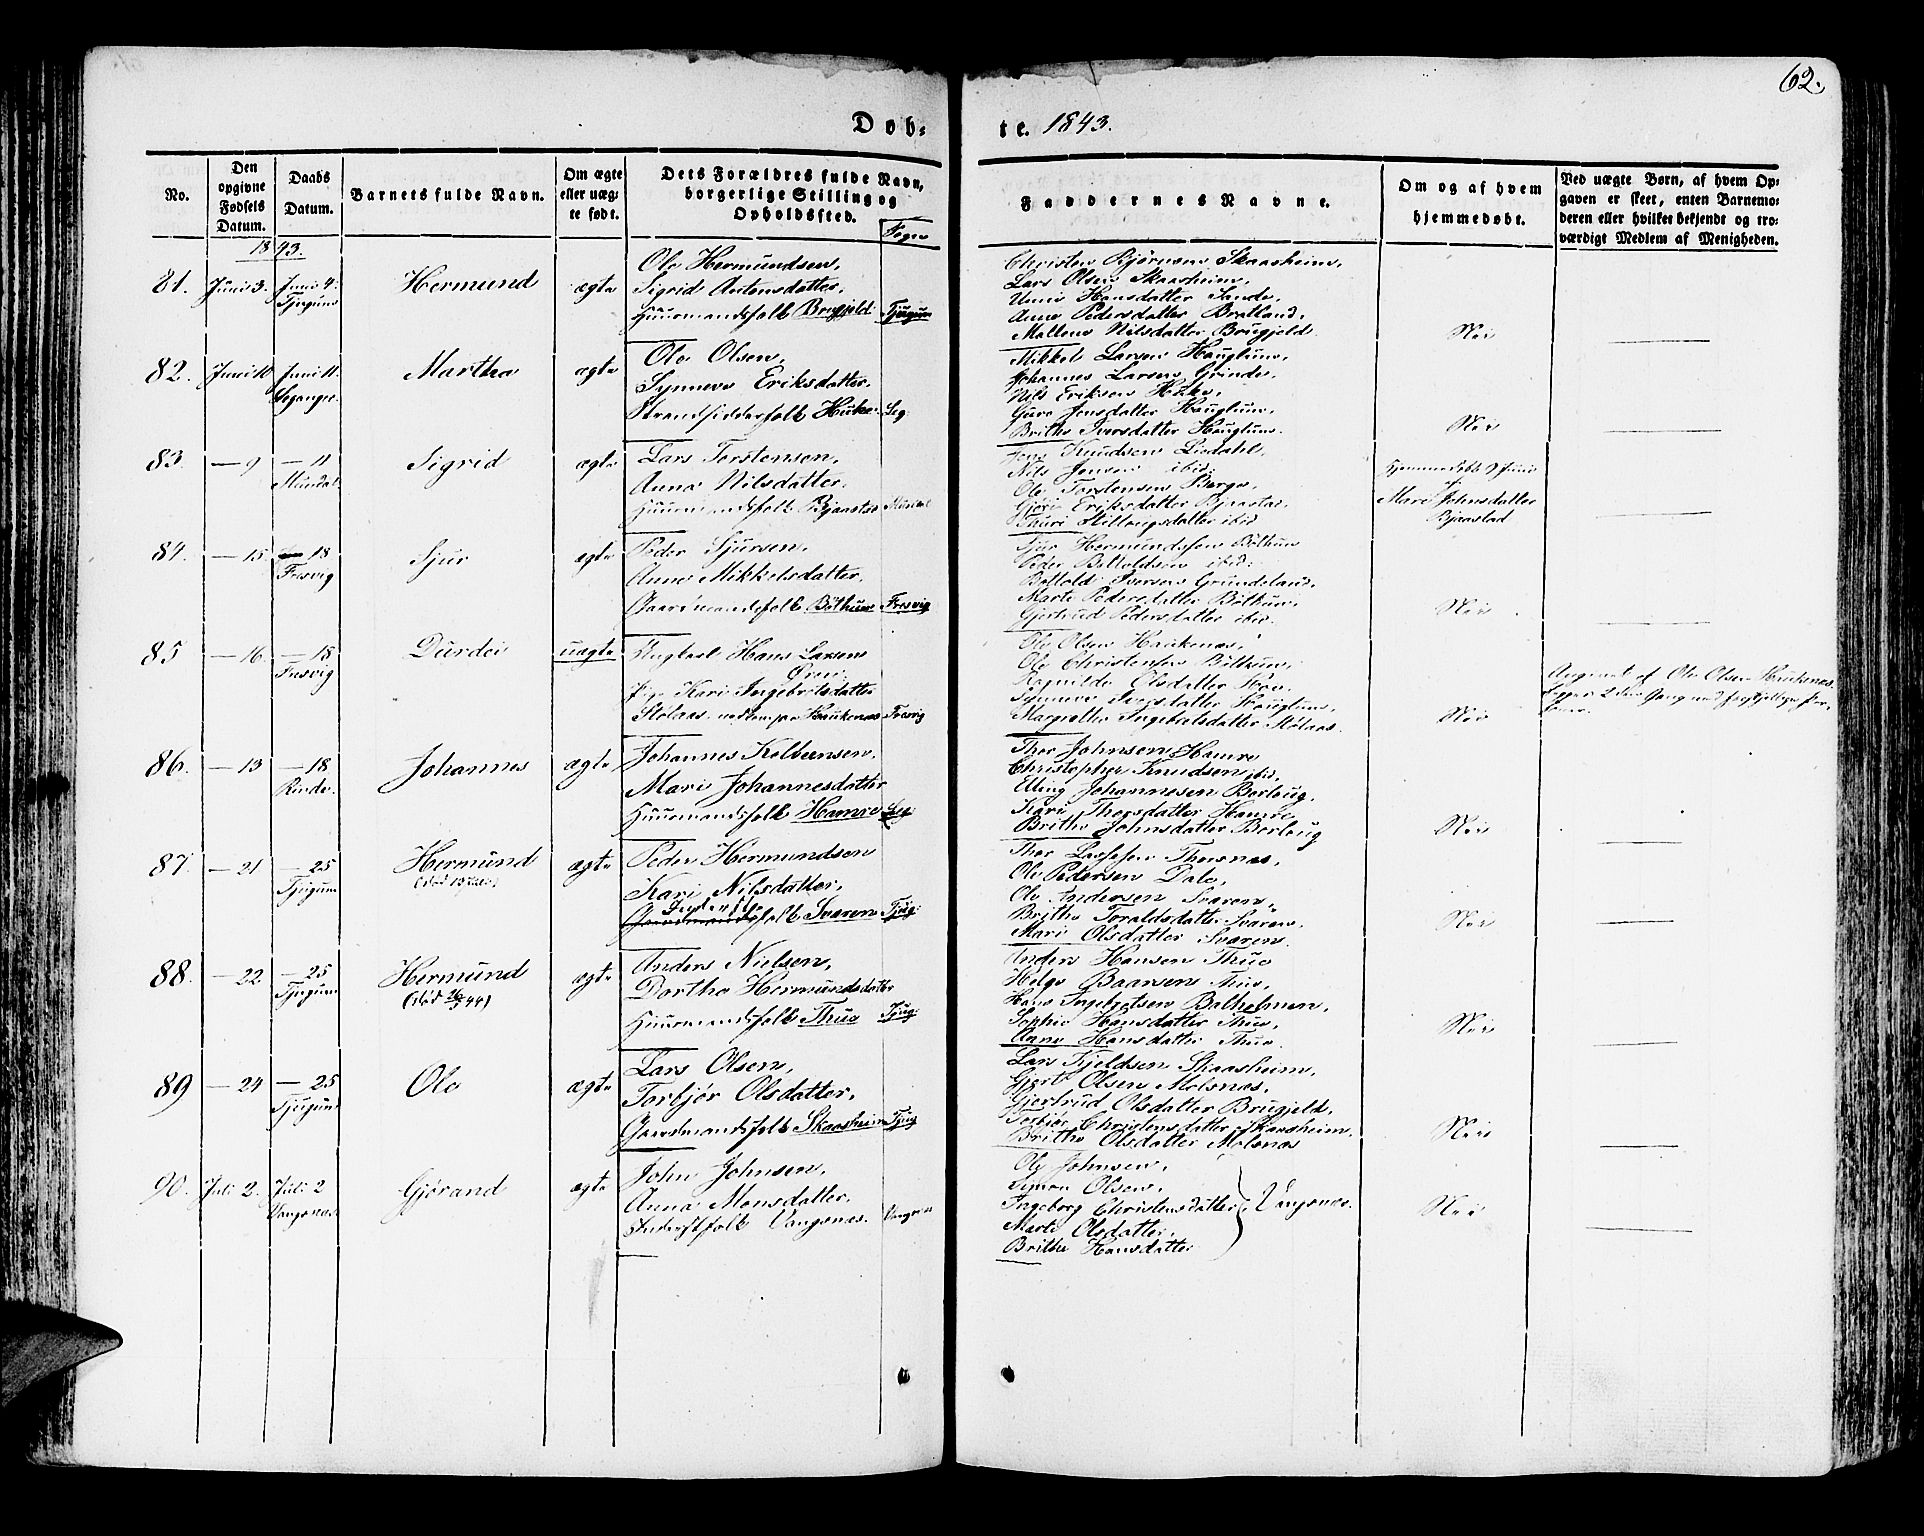 62.
Døb-
te. 1843.
No.
Den opgivne Fødsels Datum.
Daabs Datum.
Barnets fulde Navn.
Om ægte eller uægte født.
Dets Forældres fulde Navn, borgerlige Stilling og Opholdssted.
Sogn
Faddernes Navne.
Om og af hvem hjemmedøbt.
Ved uægte Børn, af hvem Opgaven er skeet, enten Barnemoderen eller hvilket bekjendt og troværdigt Medlem af Menigheden.
1843.
81. Juni 3. Juni 4. Tjugum Hermund ægte
Ole Hermundsen,
Sigrid Antonsdatter,
Huusmandsfolk Brugjeld. Tjugum
Christen Bjørnsen Skaasheim,
Lars Olsen Skaasheim,
Unni Hansdatter Sande,
Anne Pedersdatter Bratland,
Mallene Nilsdatter Brugjeld.
Nei
82. Juni 10 Juni 11. Leganger. Martha ægte
Ole Olsen,
Synneve Eriksdatter,
Strandsidderfolk Huke. Leg.
Mikkel Larsen Hauglum,
Johannes Larsen Grinde,
Nils Eriksen Huke,
Guro Jensdatter Hauglum,
Brithe Iversdatter Hauglum.
Nei
83. — 9 — 11 Mundal. Sigrid ægte
Lars Torstensen,
Anna Nilsdatter,
Huusmandsfolk Bjaastad Mundal
Jens Knudsen Lidahl,
Nils Jensen ibid.
Ole Torstensen Berge,
Gjøri Eriksdatter Bjaastad,
Thuri Stillaugsdatter ibid
Hjemmedøbt 9 Juni
af
Mari Johnsdatter
Bjaastad
84. — 15. — 18 Fresvig Sjur ægte
Peder Sjursen,
Anne Mikkelsdatter,
Gaardmandsfolk Bøthun Fresvig
Sjur Hermundssen Bøthun
Peder Bottoldsen ibid.
Bottold Iversen Grundeland,
Marte Pedersdatter Bøthun,
Gjertrud Pedersdatter ibid.
Nei
85 — 16. — 18 Fresvig Durdei uægte
Ungkarl Hans Larsen
Øren
Pige Kari Ingebrigtsdatter
Stølaas. Haukenæs Fresvig
Ole Olsen Haukenæs,
Ole Christensen Bøthun,
Ragnilde Olsdatter
Synneve Iversdatter Hauglum,
Margrethe Ingebrigtsdatter Stølaas.
Nei
Angivet af Ole Olsen Haukenæs.
86. — 13 — 18 Rinde. Johannes ægte
Johannes Kolbeensen,
Mari Johannesdatter
Huusmandsfolk Hamre Leg.
Thor Johnsen Hamre
Christopher Knudsen ibid.
Elling Johannessen Borlaug,
Kari Thorsdatter Hamre,
Brithe Johnsdatter Borlaug
Nei
87. — 21 — 25 Tjugum Hermund ægte
Peder Hermundsen
Kari Nilsdatter,
Gaardmandsfolk Sværen Tjug.
Thor Larssen Thornæs,
Ole Pedersen Dale,
Ole Andersen Sværen,
Brithe Toraldsdatter Sværen,
Mari Olsdatter Sværen.
Nei
88. — 22. — 25 Tjugum Hermund ægte
Anders Nielsen,
Dorthe Hermundsdatter
Huusmandsfolk Thue Tjug.
Anders Hansen Thue
Helge Baarsen Thue,
Hans Ingebretsen Balhelmen,
Sophie Hansdatter Thue,
Anne Hansdatter Thue.
Nei
89 — 24 — 25 Tjugum Ole ægte
Lars Olsen,
Torbjør Olsdatter,
Gaardmandsfolk Skaasheim Tjug
Lars Kjeldsen Skaasheim,
Gjert Olsen Molsnæs,
Gjertrud Olsdatter Brugjeld,
Torbjør Christensdatter Skaasheim,
Brithe Olsdatter Molsnæs
Nei
90. Juli 2. Juli 2 Vangsnæs. Gjørand ægte
John Johnsen,
Anna Monsdatter,
Inderstfolk Vangsnæs. Vangsnæs
Ole Johnsen,
Simon Olsen,
Ingeborg Christensdatter Vangsnæs.
Marte Olsdatter,
Brithe Hansdatter
Nei